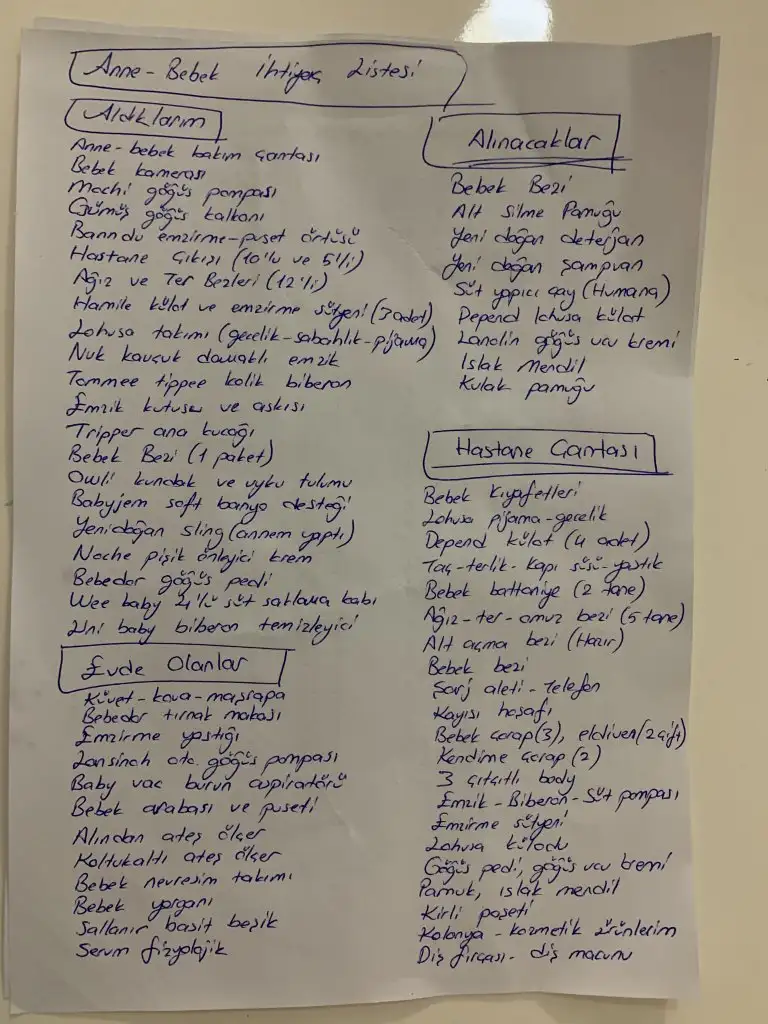 Anne-Bebek İhtiyaç Listesi
Aldıklarım
Anne-bebek bakım çantası
Bebek kamerası
Mochi göğüs pompası
Gümüş göğüs kalkanı
Banndu emzirme-puset örtüsü
Hastane Çıkışı (10'lu ve 5'li)
Ağız ve Ter Bezleri (12'li)
Hamile külot ve emzirme sütyeni (3 adet)
Lohusa takımı (gecelik-sabahlık-pijama)
Nuk kauçuk damaklı emzik
Tommee tippee kolik biberon
Emzik kutusu ve askısı
Tripper ana kucağı
Bebek Bezi (1 paket)
Owli kundak ve uyku tulumu
Babyjem soft banyo desteği
Yenidoğan sling (annem yaptı)
Noche pişik önleyici krem
Bebedor göğüs pedi
Wee baby 4'lü süt saklama kabı
Uni baby biberon temizleyici
Evde Olanlar
Küvet-kova-maşrapa
Bebedor tırnak makası
Emzirme yastığı
Lansinoh otc. göğüs pompası
Baby vac burun aspiratörü
Bebek arabası ve puseti
Alından ateş ölçer
Koltukaltı ateş ölçer
Bebek nevresim takımı
Bebek yorganı
Sallanır basit beşik
Serum fizyolojik
Alınacaklar
Bebek Bezi
Alt silme Pamuğu
Yeni doğan deterjan
Yeni doğan şampuan
Süt yapıcı çay (Humana)
Depend lohusa külot
Lanolin göğüs ucu kremi
Islak Mendil
Kulak pamuğu
Hastane Çantası
Bebek Kıyafetleri
Lohusa pijama-gecelik
Depend külot (4 adet)
Taç-terlik-Kapı süsü-yastık
Bebek battaniye (2 tane)
Ağız-ter-omuz bezi (5 tane)
Alt açma bezi (Hazır)
Bebek bezi
Şarj aleti-Telefon
Kayısı hoşafı
Bebek çorap(3), eldiven(2 çift)
Kendime çorap (2)
3 çıtçıtlı body
Emzik-Biberon-Süt pompası
Emzirme sütyeni
Lohusa külodu
Göğüs pedi, göğüs ucu kremi
Pamuk, ıslak mendil
Kirli poşeti
Kolonya-kozmetik ürünlerim
Diş fırçası-diş macunu